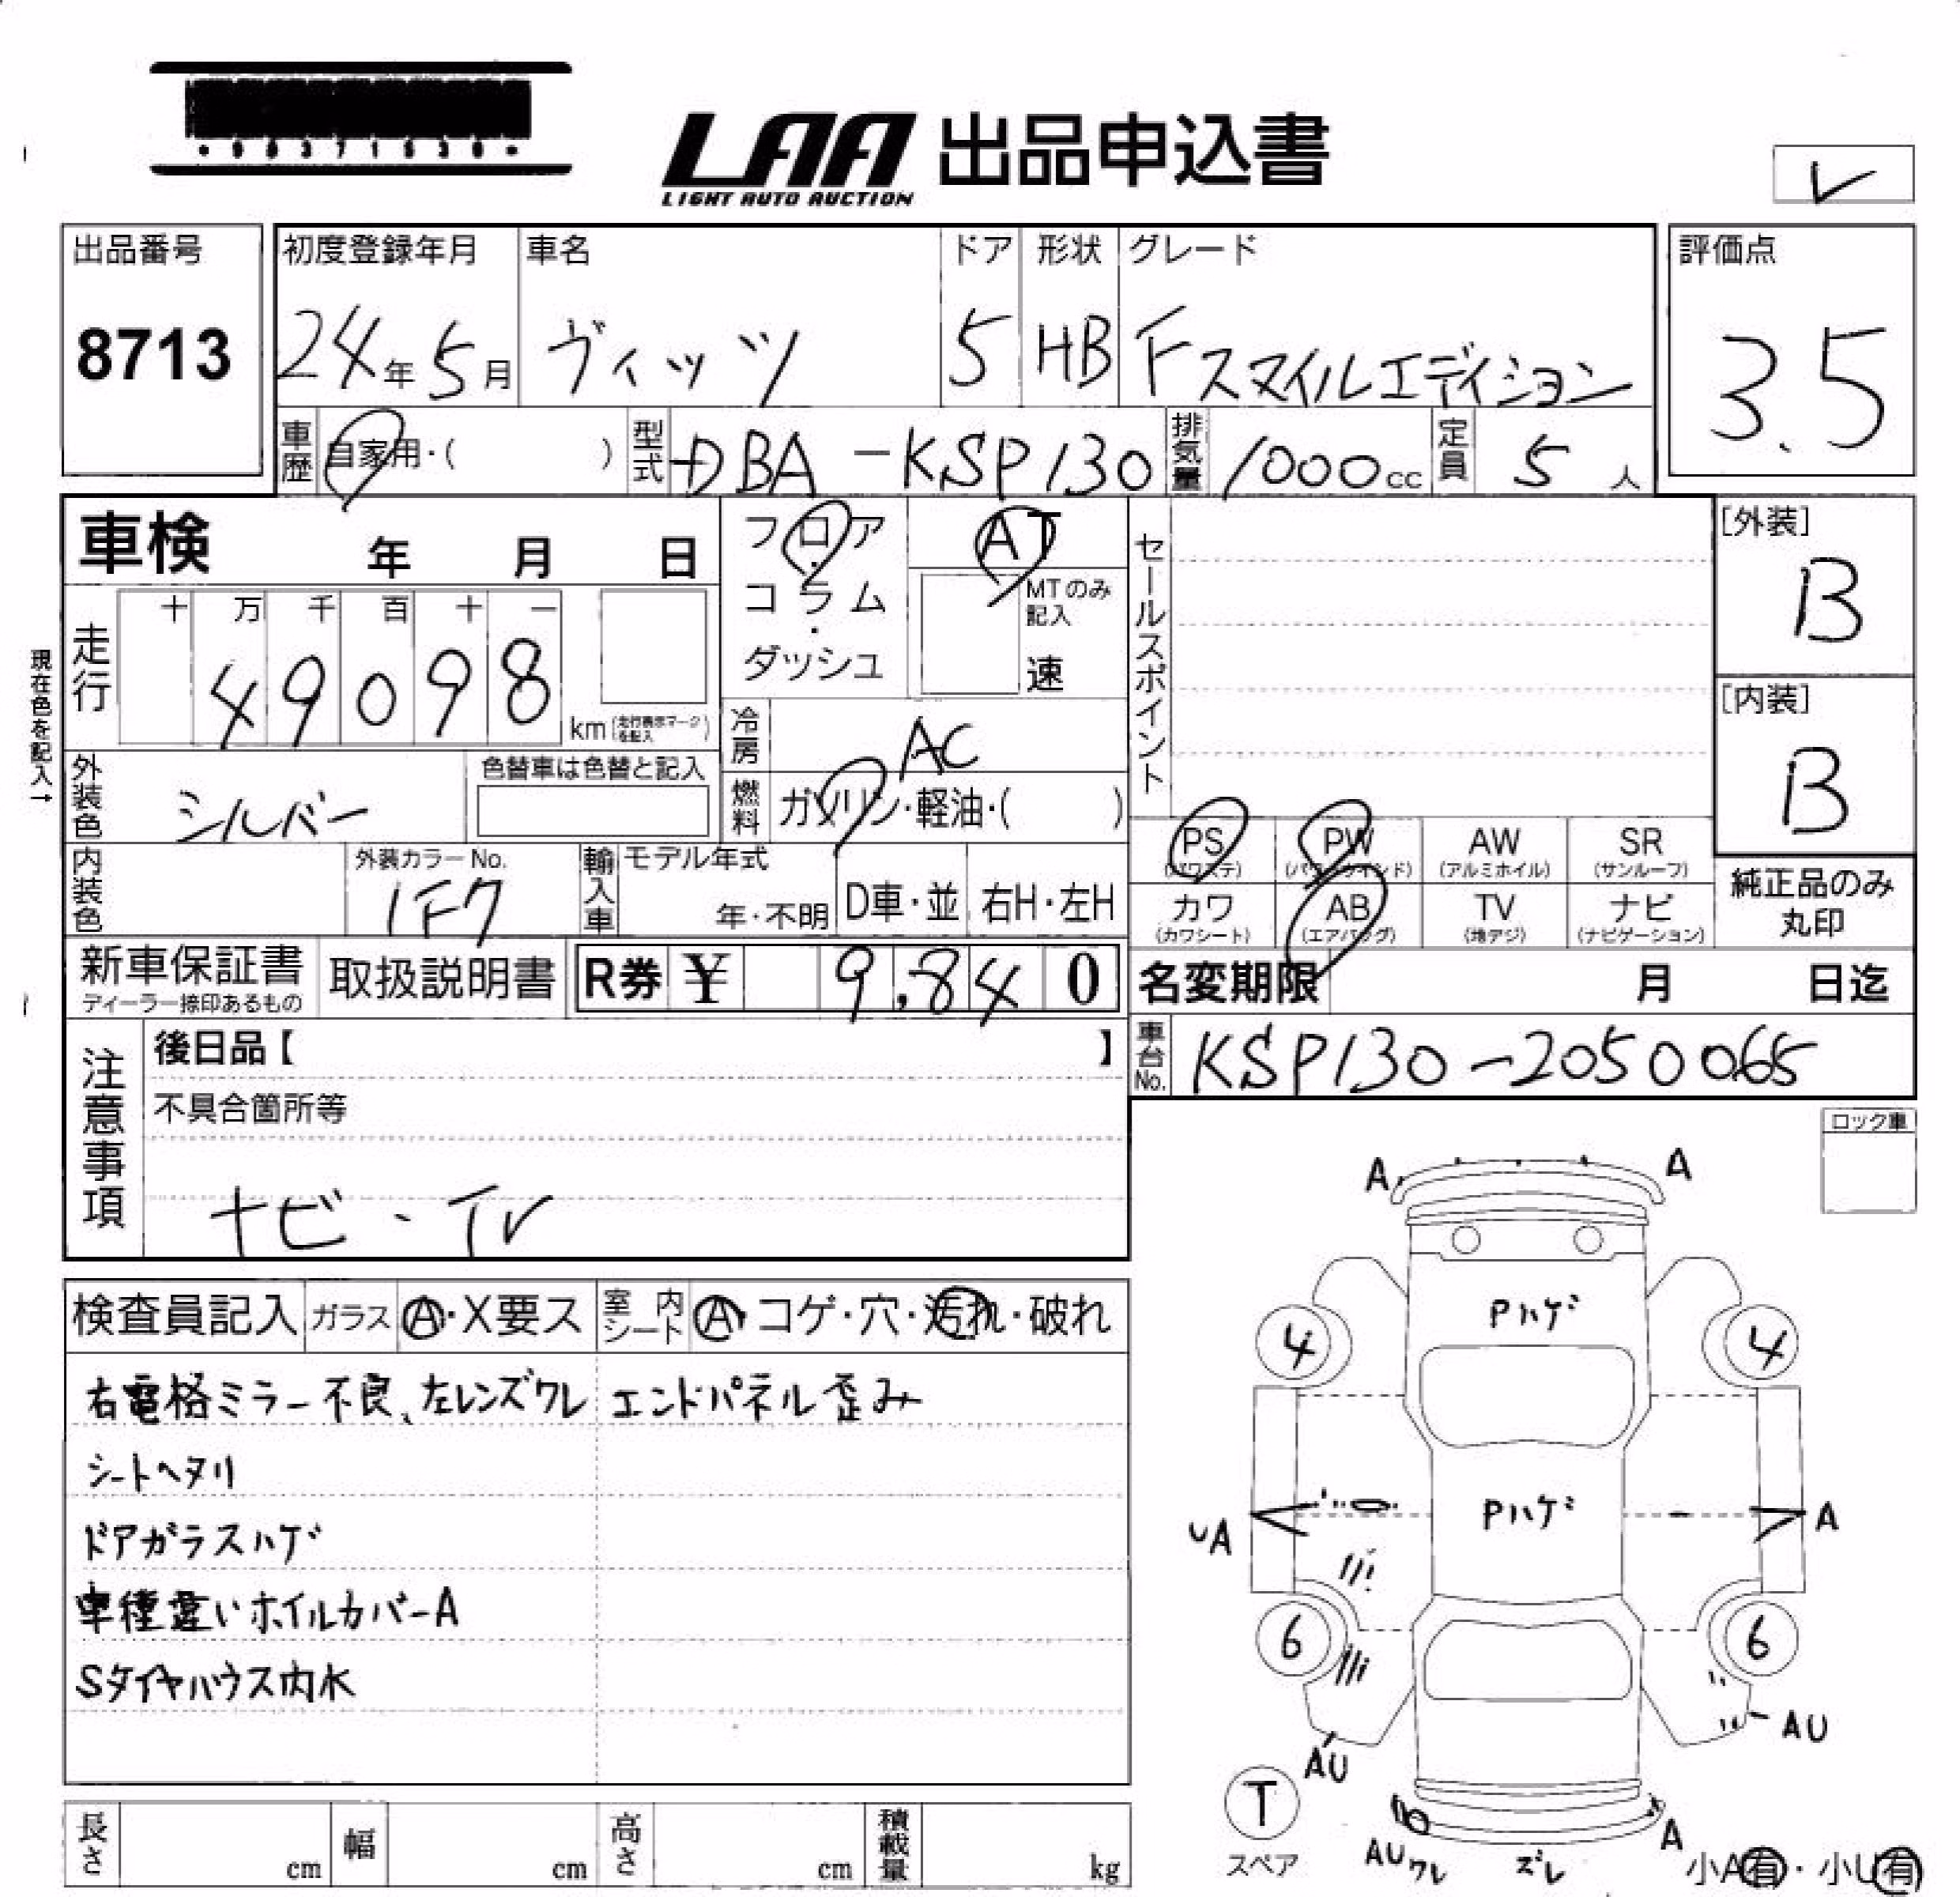 LAA 出品申込書
LIGHT AUTO AUCTION
出品番号
8713
初度登録年月
24年5月
車名
ヴィッツ
ドア
5
形状
HB
グレード
Fスマイルエディション
評価点
3.5
車歴 自家用・( )
型式 DBA-KSP130
排気量 1000cc
定員 5人
車検 年 月 日
フロア・コラム・ダッシュ
AT
MTのみ記入
速
セールスポイント
[外装]
B
[内装]
B
現在色を記入→
走行
十 万 千 百 十 一
4 9 0 9 8
km (走行表示マークを記入)
冷房 AC
燃料 ガソリン・軽油・( )
外装色 シルバー
色替車は色替と記入
内装色
外装カラーNo.
1F7
輸入車
モデル年式
年・不明
D車・並
右H・左H
PS (パワステ)
PW (パワーウインド)
AW (アルミホイル)
SR (サンルーフ)
カワ (カワシート)
AB (エアバッグ)
TV (地デジ)
ナビ (ナビゲーション)
純正品のみ丸印
新車保証書
ディーラー捺印あるもの
取扱説明書
R券 ¥ 9,840
名変期限 月 日迄
車台No. KSP130-2050065
注意事項
後日品【 】
不具合箇所等
ナビ・TV
ロック車
検査員記入
ガラス A・X要ス
室内シート A・コゲ・穴・汚れ・破れ
右電格ミラー不良、左レンズワレ エンドパネル歪み
シートヘタリ
ドアガラスハゲ
車種違いホイルカバーA
Sタイヤハウス内水
長さ cm
幅 cm
高さ cm
積載量 kg
A A
Pハゲ
4 4
Pハゲ
UA A
6 6
AU AU
T
スペア
AUワレ
ズレ
A
小A有・小U有